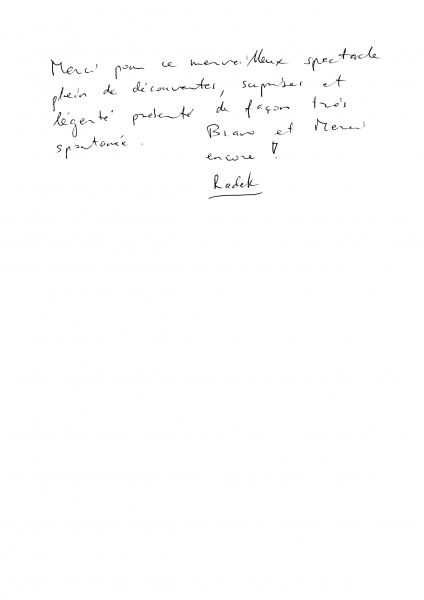 Merci pour ce merveilleux spectacle
plein de découvertes, surprises et
légerté présenté de façon très
spontanée. Bravo et Merci
encore !
Radek